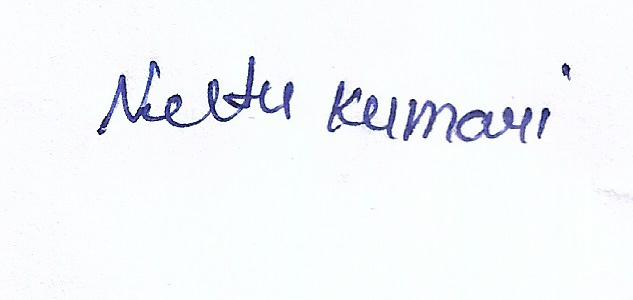 Neetu Kumari